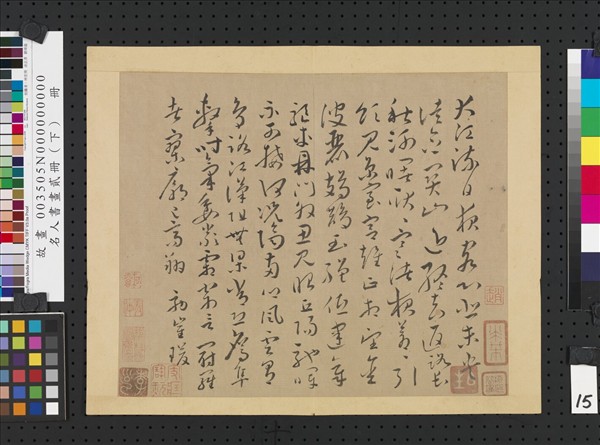 大江流日夜客心悲未央
徒念關山近終知返路長
秋河曙耿〻寒渚夜蒼〻引
領見京室宮雉正相望金
波麗鳷鵲玉繩低建章
驅車鼎門外思見昭丘陽馳暉
不可接何況隔兩鄉風雲有
鳥路江漢限無梁常恐鷹隼
擊時菊委嚴霜寄言罻羅
者寥廓已高翔 效崔瑗
故畫 003505N000000000 冊
名人書畫貳冊(下)
15